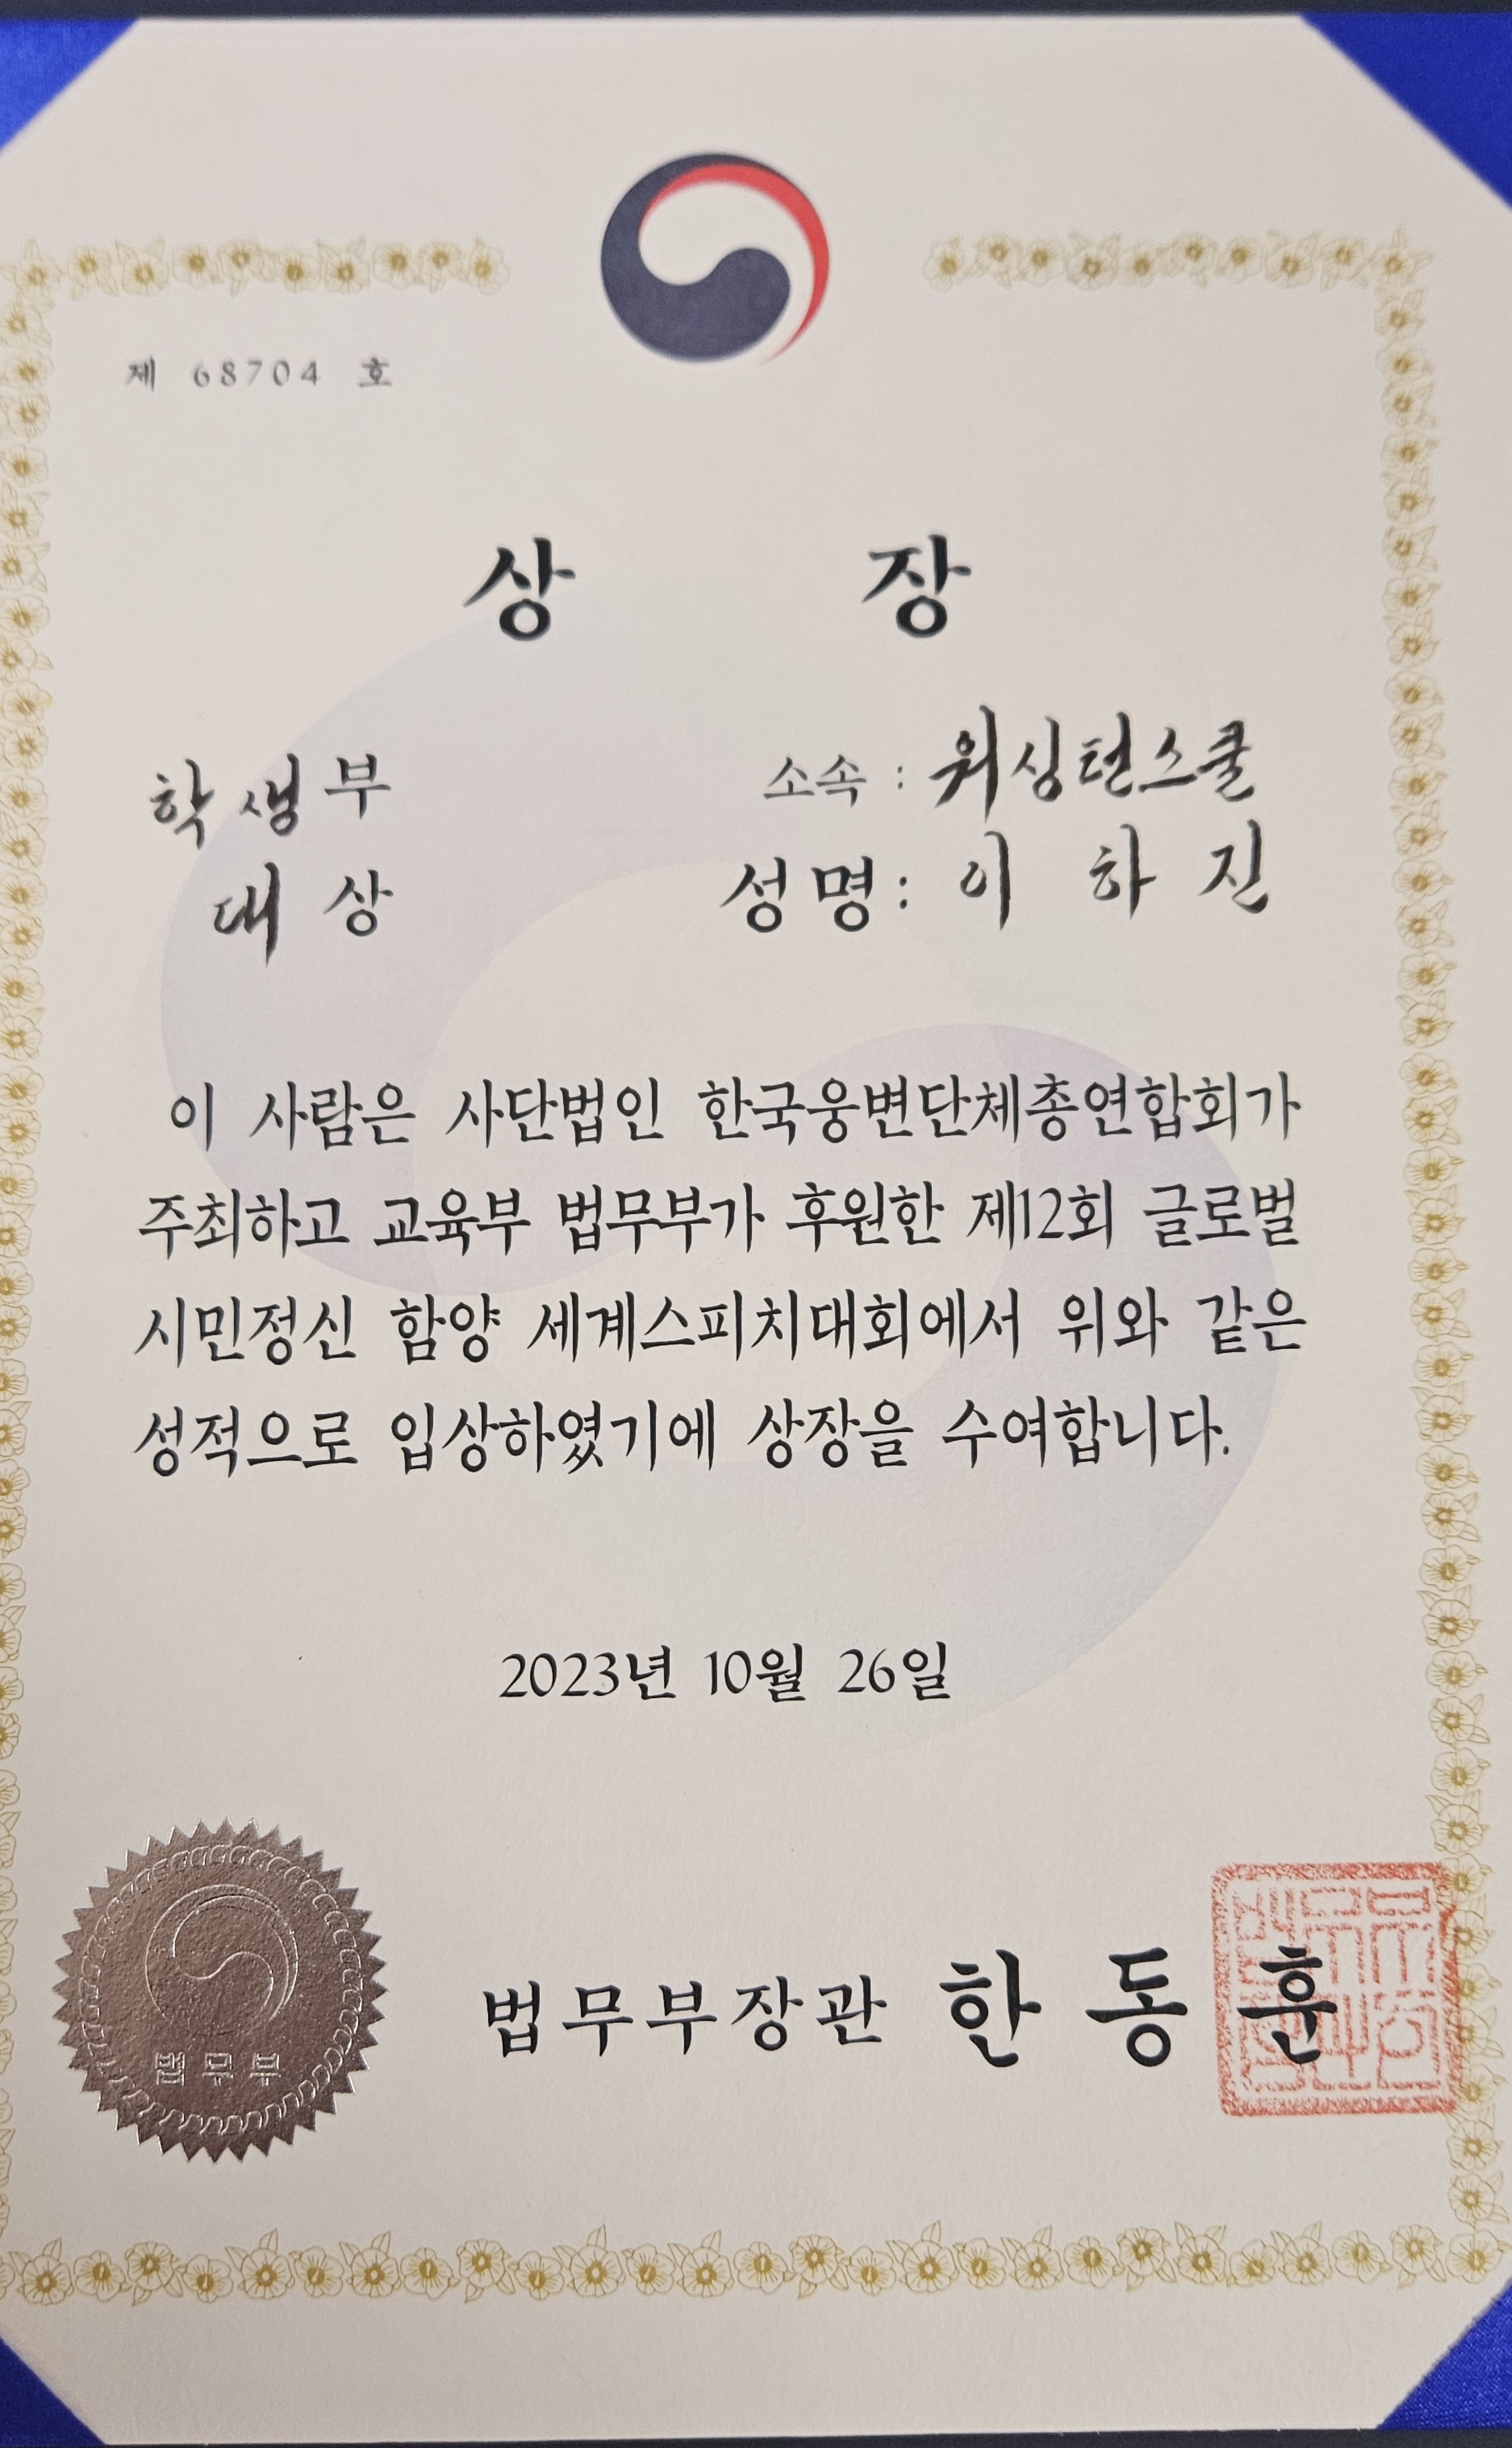 제 68704 호
상 장
학생부
대상
소속 : 워싱턴스쿨
성명 : 이 하 진
이 사람은 사단법인 한국웅변단체총연합회가
주최하고 교육부 법무부가 후원한 제12회 글로벌
시민정신 함양 세계스피치대회에서 위와 같은
성적으로 입상하였기에 상장을 수여합니다.
2023년 10월 26일
법무부
법무부장관 한 동 훈